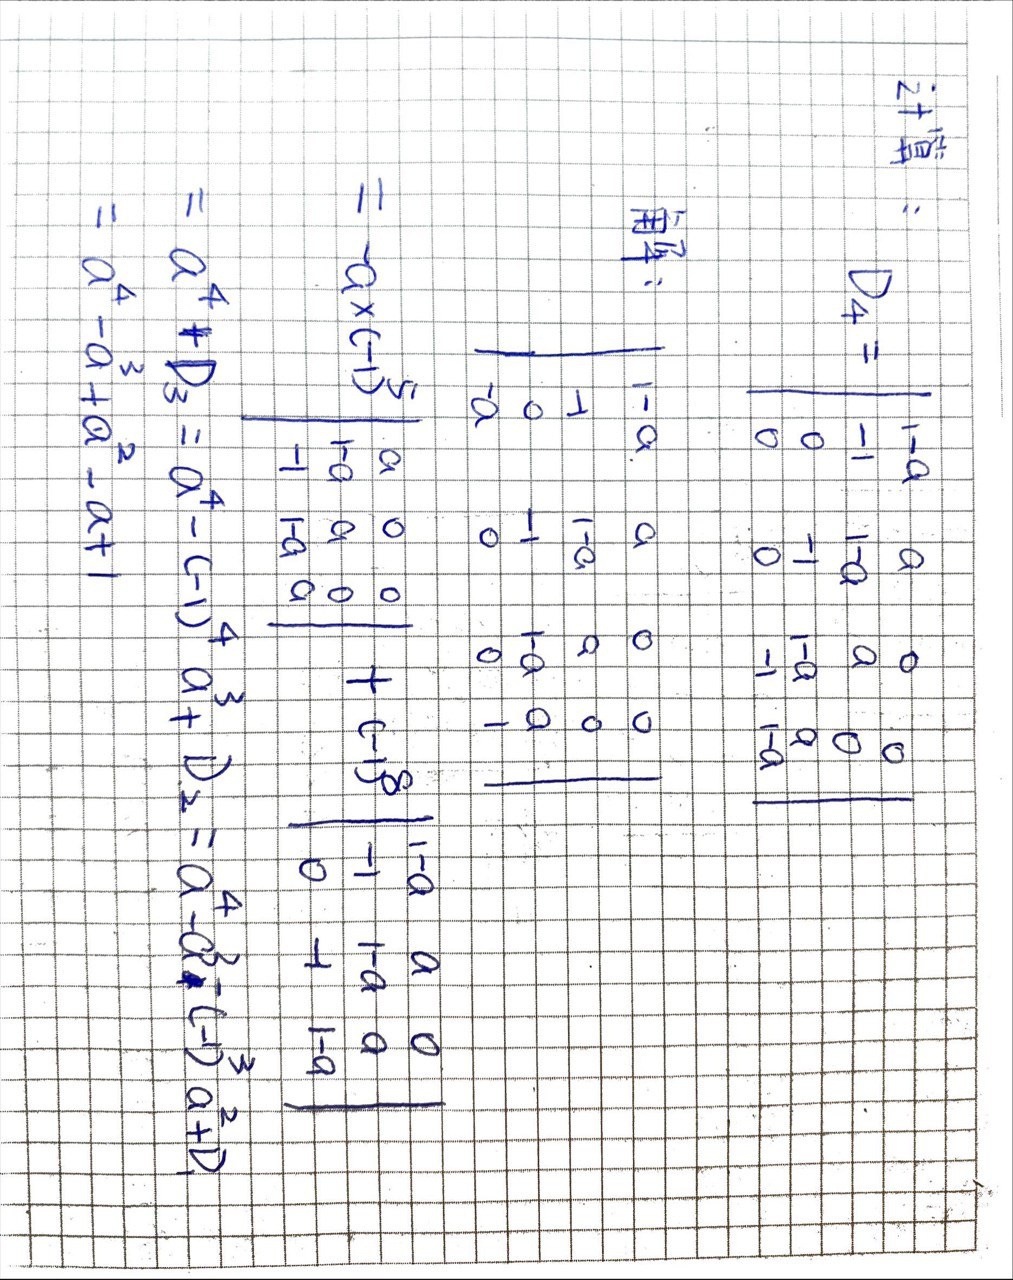 计算:
D₄ = | 1-a a 0 0 |
| -1 1-a a 0 |
| 0 -1 1-a a |
| 0 0 -1 1-a |
解:
| 1-a a 0 0 |
| -1 1-a a 0 |
| 0 -1 1-a a |
| -a 0 0 1 |
= -a×(-1)⁵ | a 0 0 | + (-1)⁸ | 1-a a 0 |
| 1-a a 0 | | -1 1-a a |
| -1 1-a a | | 0 -1 1-a |
= a⁴ + D₃ = a⁴ - (-1)⁴ a³ + D₂ = a⁴ - a³ - (-1)³ a² + D₁
= a⁴ - a³ + a² - a + 1